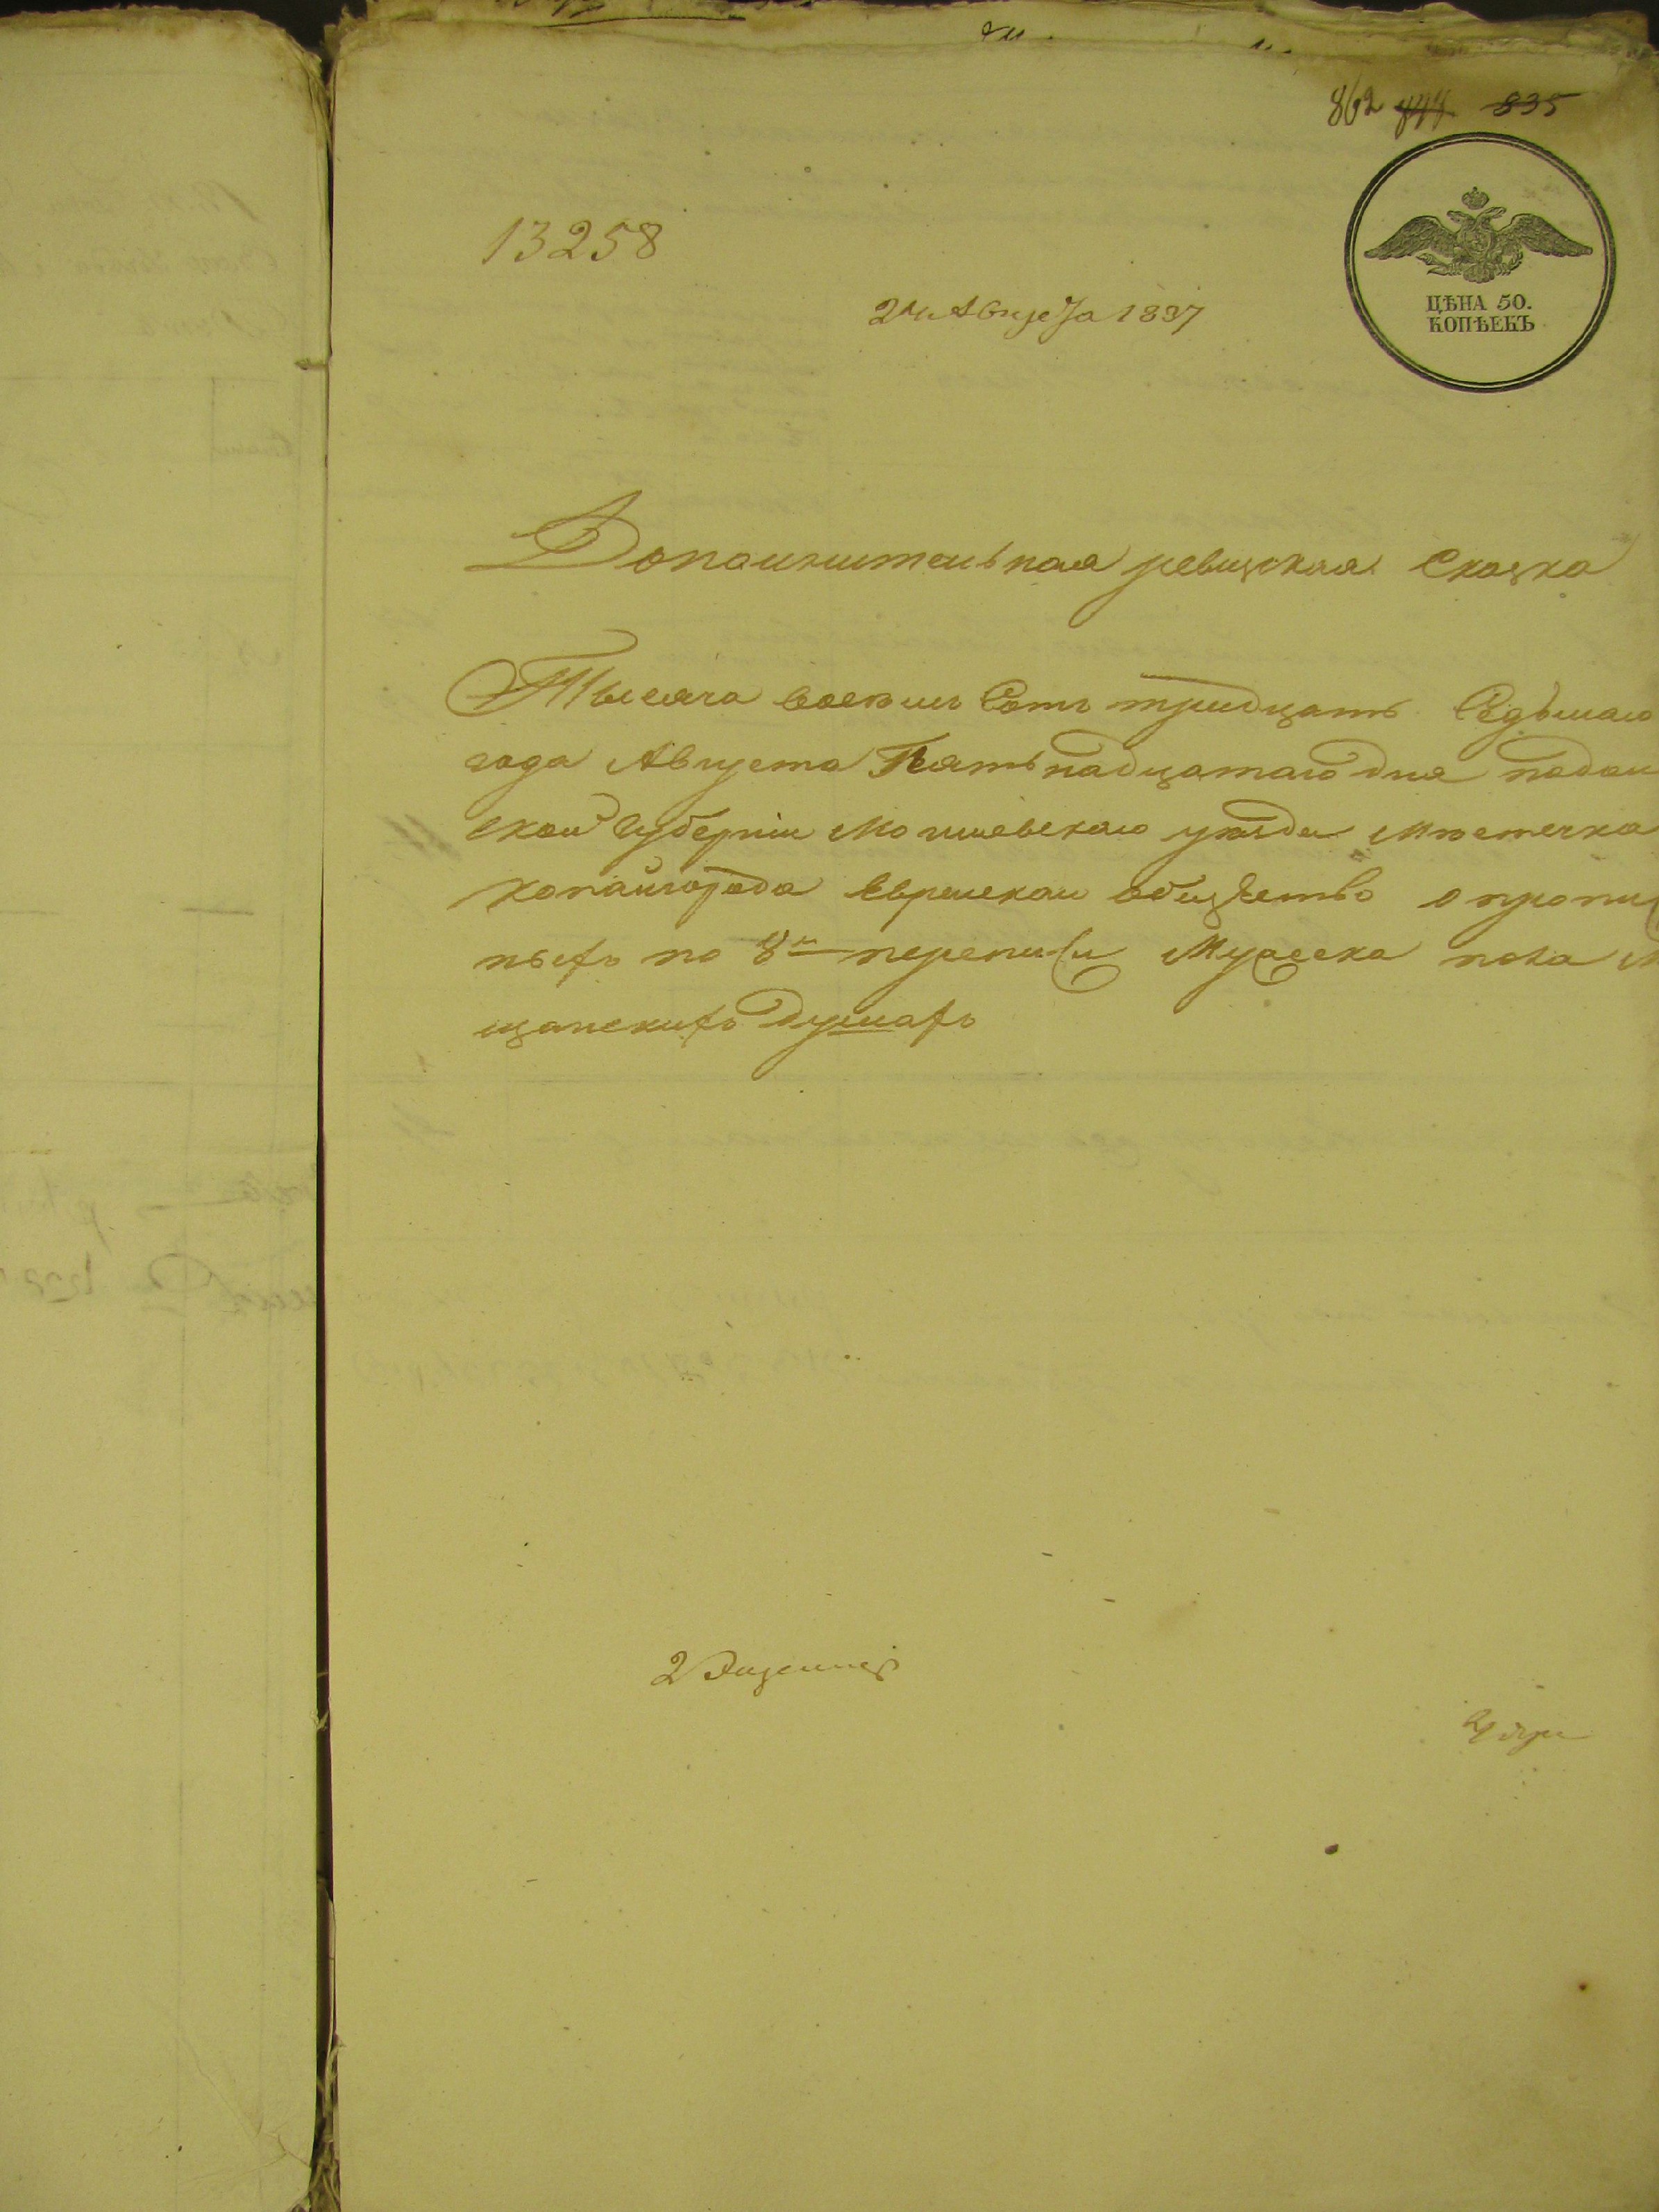 862 844 835
13258
24 Августа 1837
ЦѢНА 50.
КОПѢЕКЪ
Дополнительная ревизская Сказка
Тысяча восемь Сотъ тридцать Седьмаго
года Августа Пятьнадцатаго дня подоль
ской Губерніи Могилевскаго уѣзда Мѣстечка
Копайгорода Еврейскаи общество о пропис
ныхъ по 8й переписи Мужеска пола М
щанскихъ Душахъ